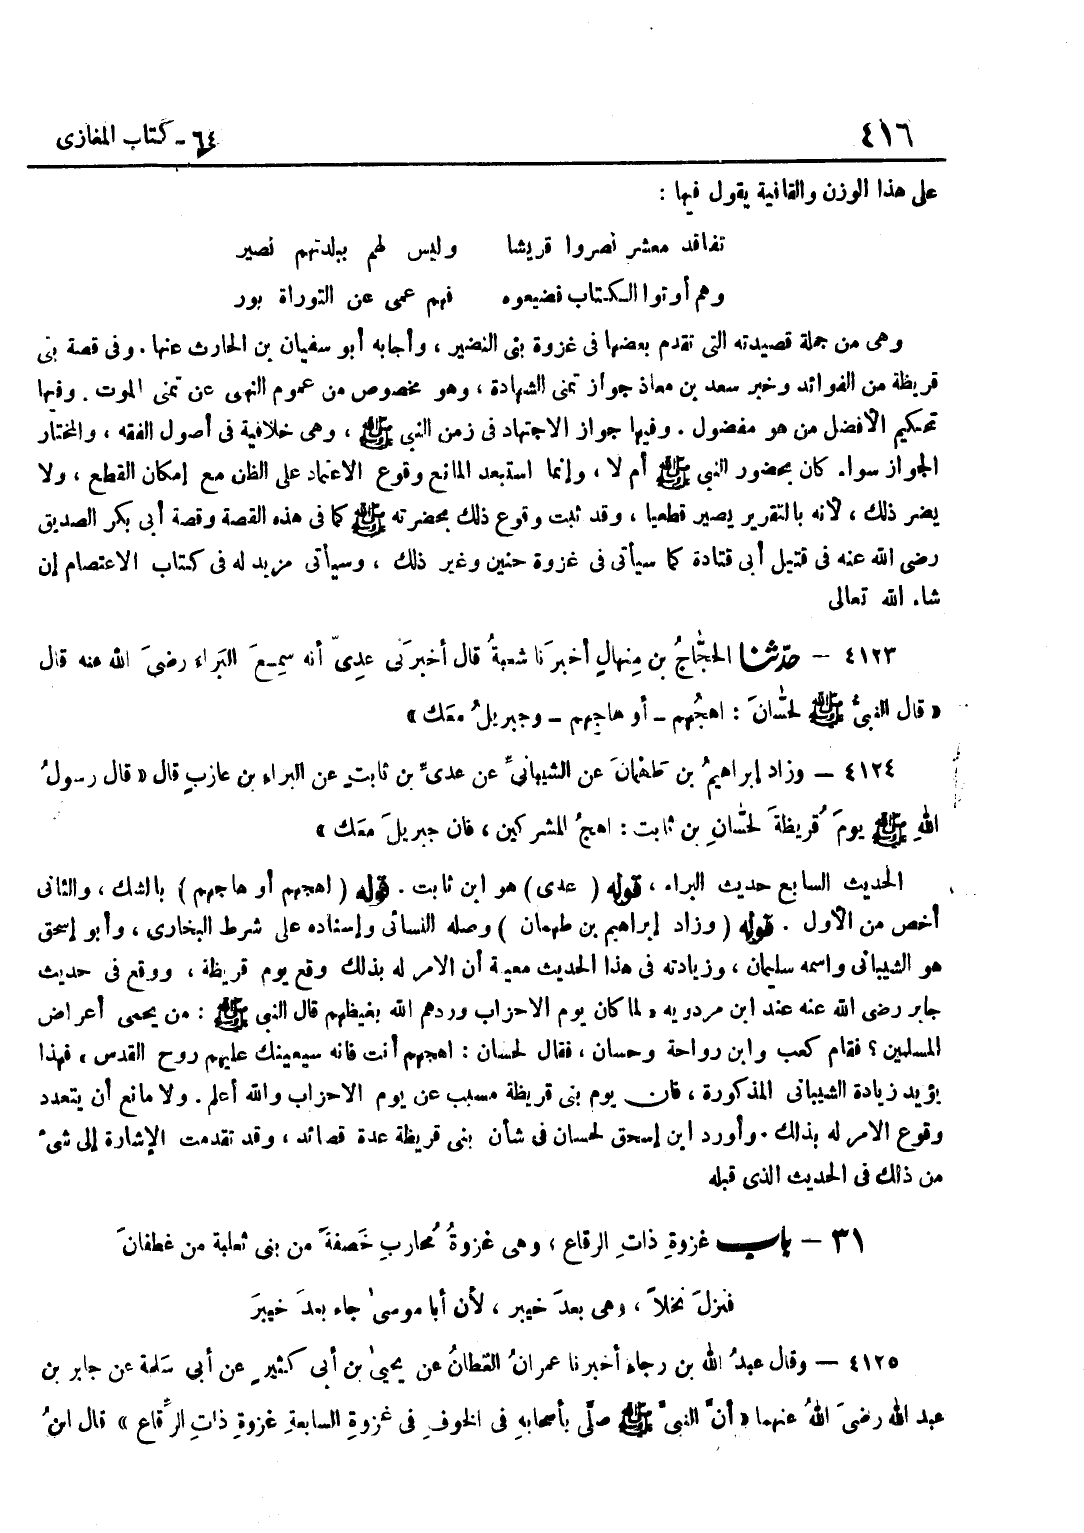 ٤١٦
٦٤ - كتاب المغازى
على هذا الوزن والقافية يقول فيها :
تفاقد معشر نصروا قريشا وليس لهم ببلدتهم نصير
وهم أوتوا الكتاب فضيعوه فهم عمى عن التوراة بور
وهى من جملة قصيدته التى تقدم بعضها فى غزوة بنى النضير ، وأجابه أبو سفيان بن الحارث عنها . وفى قصة بنى
قريظة من الفوائد وخبر سعد بن معاذ جواز تمنى الشهادة ، وهو مخصوص من عموم النهى عن تمنى الموت . وفيها
تحكيم الأفضل من هو مفضول . وفيها جواز الاجتهاد فى زمن النبي ﷺ ، وهى خلافية فى أصول الفقه ، والمختار
الجواز سواء كان بحضور النبي ﷺ أم لا ، وإنما استبعد المانع وقوع الاعتماد على الظن مع إمكان القطع ، ولا
يضر ذلك ، لأنه بالتقرير يصير قطعيا ، وقد ثبت وقوع ذلك بحضرته ﷺ كما فى هذه القصة وقصة أبى بكر الصديق
رضى الله عنه فى قتيل أبى قتادة كما سيأتى فى غزوة حنين وغير ذلك ، وسيأتى مزيد له فى كتاب الاعتصام إن
شاء الله تعالى
٤١٢٣ - حدّثنا الحجّاجُ بن مِنهالٍ أخبرَنا شعبةُ قال أخبرَنى عدىّ أنه سمِعَ البَراء رضىَ الله عنه قال
« قال النبىُّ ﷺ لحسّانَ : اهجُهم - أو هاجِهم - وجبريلُ معَك »
٤١٢٤ - وزاد إبراهيمُ بن طَهْمانَ عن الشيبانىِّ عن عدىِّ بن ثابتٍ عن البراء بن عازبٍ قال « قال رسولُ
اللهِ ﷺ يومَ قُريظةَ لحسّانِ بن ثابت : اهجُ المشركين ، فان جبريلَ معَك »
الحديث السابع حديث البراء ، قوله ( عدى ) هو ابن ثابت . قوله ( اهجهم أو هاجهم ) بالشك ، والثانى
أخص من الأول . قوله ( وزاد إبراهيم بن طهمان ) وصله النسائى وإسناده على شرط البخارى ، وأبو إسحق
هو الشيبانى واسمه سليمان ، وزيادته فى هذا الحديث معينة أن الامر له بذلك وقع يوم قريظة ، ووقع فى حديث
جابر رضى الله عنه عند ابن مردويه « لما كان يوم الاحزاب وردهم الله بغيظهم قال النبي ﷺ : من يحمى أعراض
المسلمين ؟ فقام كعب وابن رواحة وحسان ، فقال لحسان : اهجهم أنت فانه سيعينك عليهم روح القدس » فهذا
يؤيد زيادة الشيبانى المذكورة ، فان يوم بنى قريظة مسبب عن يوم الاحزاب والله أعلم . ولا مانع أن يتعدد
وقوع الامر له بذلك . وأورد ابن إسحق لحسان فى شأن بنى قريظة عدة قصائد ، وقد تقدمت الإشارة إلى شىء
من ذلك فى الحديث الذى قبله
٣١ - باب غزوةِ ذاتِ الرقاع ، وهى غزوةُ مُحاربِ خَصفةَ من بنى ثعلبة من غطفانَ
فنزلَ نخلاً ، وهى بعدَ خيبر ، لأن أبا موسىٰ جاء بعدَ خيبرَ
٤١٢٥ - وقال عبدُ الله بن رجاءٍ أخبرنا عمرانُ القطانُ عن يحيىٰ بن أبى كثيرٍ عن أبى سَلمة عن جابر بن
عبد الله رضىَ اللهُ عنهما « أنَّ النبىَّ ﷺ صلّى بأصحابهِ فى الخوفِ فى غزوةِ السابعةِ غزوةِ ذاتِ الرِّقاع » قال ابنُ